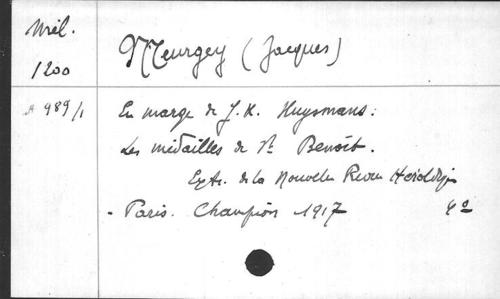 Mél.
1200
Meurgey (Jacques)
A 989/1
En marge de J. K. Huysmans :
Les médailles de St Benoît.
Extr. de la Nouvelle Revue Héraldiq
- Paris. Champion 1917 4º